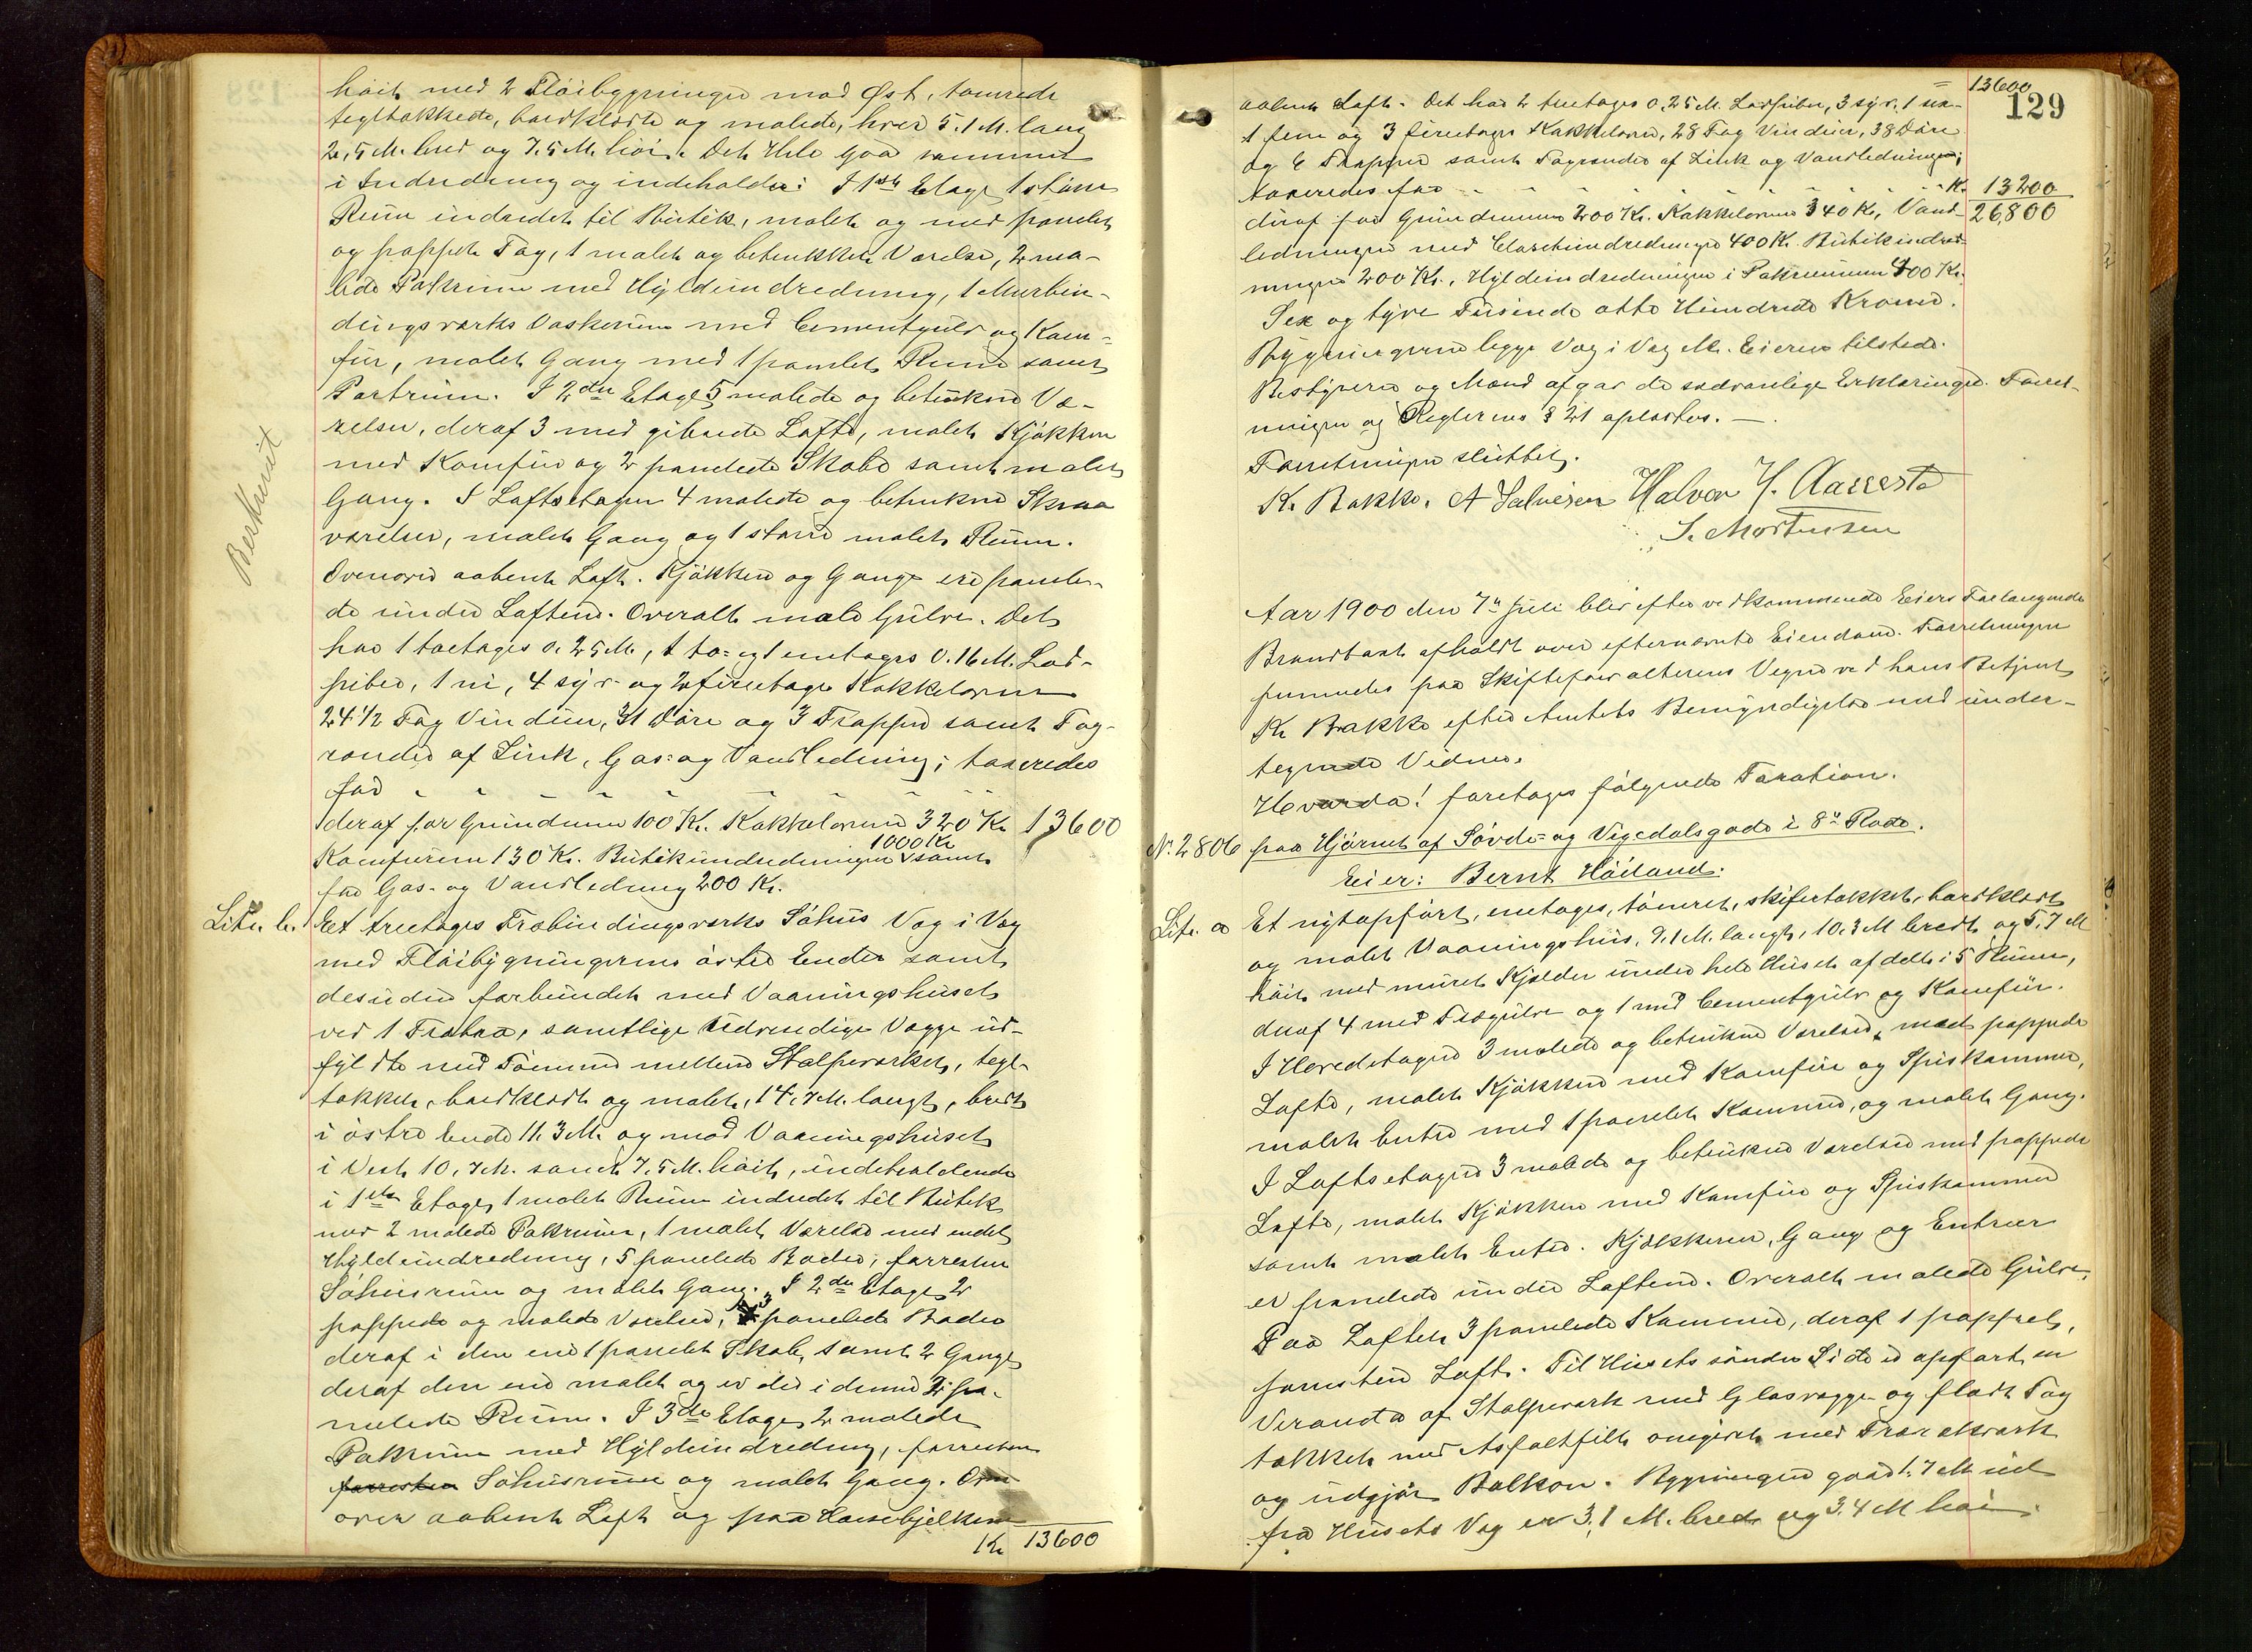 høit med 2 Fløibygninger mod Øst, tømrede
tegltækkede, bordklædte og malede, hver 5.1 M. lang
2,5 M. bred og 7.5 M. høi. Det Hele gaar sammen
i Indredning og indeholder: I 1ste Etage 1 større
Rum indredet til Butik, malet og med panelet
og pappet Tag, 1 malet og betrukket Værelse, 2 ma-
lede Pakrum med Hyldeindredning, 1 Murbin-
dingsværks Vaskerum med Cementgulv og Kom-
fur, malet Gang med 1 panelet Rum samt
Portrum. I 2den Etage 5 malede og betrukne Væ-
relser, deraf 3 med gibsede Lofte, malet Kjøkken
med Komfur og 2 panelede Skabe samt malet
Gang. I Loftsetagen 4 malede og betrukne Skraa
værelser, malet Gang og 1 større malet Rum.
Ovenover aabent Loft. Kjøkken og Gange ere panele-
de under Loftene. Overalt male Gulve. Det
har 1 toetages 0.25 M, 1 to- og 1 enetages 0.16 M. Lod-
piber, 1 ni, 4 syv- og 2 fireetages Kakkelovne
24 1/2 Fag Vinduer, 31 Døre og 3 Trapper samt Tag-
render af Zink, Gas- og Vandledning; taxeredes
for
deraf for Grundmuren 100 Kr. Kakkelovnene 320 Kr 13600
Komfurene 130 Kr. Butikindredningen 1000 Kr samt
for Gas- og Vandledning 200 Kr.
Litr. b. Et treetages Træbindingsværks Søhus Væg i Væg
med Fløibygningernes østre Ender samt
desuden forbundet med Vaaningshuset
ved 1 Trebro, samtlige udvendige Vægge ud-
fyldte med Tømmer mellem Stolpeværket, tegl-
tækket, bordklædt og malet, 14,7 M. langt, bredt
i østre Ende 11.3 M. og mod Vaaningshuset
i Vest 10,7 M. samt 7,5 M. høit, indeholdende
i 1ste Etage, 1 malet Rum indredet til Butik
med 2 malede Pakrum, 1 malet Værelse med endel
Hyldeindredning, 5 panelede Boder, forresten
Søhusrum og malet Gang. I 2den Etage 2
pappede og malede Værelser, 3 panelede Boder
deraf i den ene 1 panelet Skab, samt 2 Gange
deraf den ene malet og er der i denne 2 pa-
nelede Rum. I 3de Etage 2 malede
Pakrum med Hyldeindredning, forresten
forresten Søhusrum og malet Gang. Oven
over aabent Loft og paa Hanebjelkerne
Kr 13600
Beskrivit
129
13600
aabent Loft. Det har 2 treetages 0,25 M. Lodpiber, 3 syv, 1 sex-
1 fem og 3 fireetages Kakkelovne, 28 Fag Vinduer, 38 Døre
og 6 Trapper samt Tagrender af Zink og Vandledning;
taxeredes for K. 13200
deraf for Grundmuren 200 Kr. Kakkelovnene 340 Kr, Vand- 26,800
ledningen med Closetindredninger 400 Kr. Butikindred-
ningen 200 Kr., Hyldeindredningen i Pakrummene 400 Kr.
Sex og tyve Tusinde otte Hundrede Kroner.
Bygningerne ligge Væg i Væg M. Eieren tilstede.
Bestyreren og Mænd afgav de sædvanlige Erklæringer. Forret-
ningen og Reglernes § 21 oplæstes. —
Forretningen sluttet.
K. Bakke. A Salvesen Halvor H. Aarrestad
S. Mortensen
Aar 1900 den 7de Juli blev efter vedkommende Eiers Forlangende
Brandtaxt afholdt over efternævnte Eiendom. Forretningen
fremmedes paa Skifteforvalterens Vegne ved hans Betjent
K Bakke efter Amtets Bemyndigelse med under-
tegnede Vidner.
Hvorda! foretoges følgende Taxation.
No. 2806 paa Hjørnet af Søvde- og Vigedalsgade i 8de Rode.
Eier: Bernt Høiland.
Litr. a Et nyt opført, enetages, tømret, skifertækket, bordklædt
og malet Vaaningshus, 9.1 M. langt, 10.3 M bredt og 5,7 M
høit med muret Kjælder under hele Huset afdelt i 5 Rum,
deraf 4 med Trægulve og 1 med Cementgulv og Komfur.
I Hovedetagen 3 malede og betrukne Værelser, med pappede
Lofte, malet Kjøkken med Komfur og Spiskammer,
malet Entre med 1 panelet Kammer, og malet Gang.
I Loftsetagen 3 malede og betrukne Værelser med pappede
Lofte, malet Kjøkken med Komfur og Spiskammer
samt malet Entre. Kjøkkener, Gang og Entreer
er panelede under Loftene. Overalt malede Gulve.
Paa Loftet 3 panelede Kammer, deraf 1 pappet,
forresten Loft. Til Husets søndre Side er opført en
Veranda af Stolpeværk med Glasvægge og fladt Tag
tækket med Asfaltfilt omgivet med Trærækværk
og udgjør Balkon. Bygningen gaar 1.7 M ud
fra Husets Væg er 3,1 M. bred og 3.4 M høi.